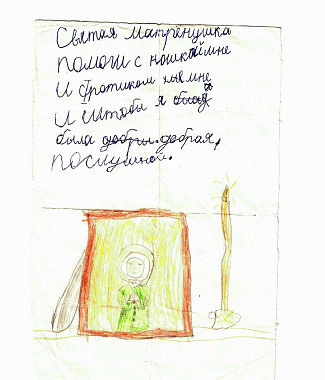 Святая Матренушка
помоги с мне
и братиком мне
и штобы я
была добры. добрая,
послушной.